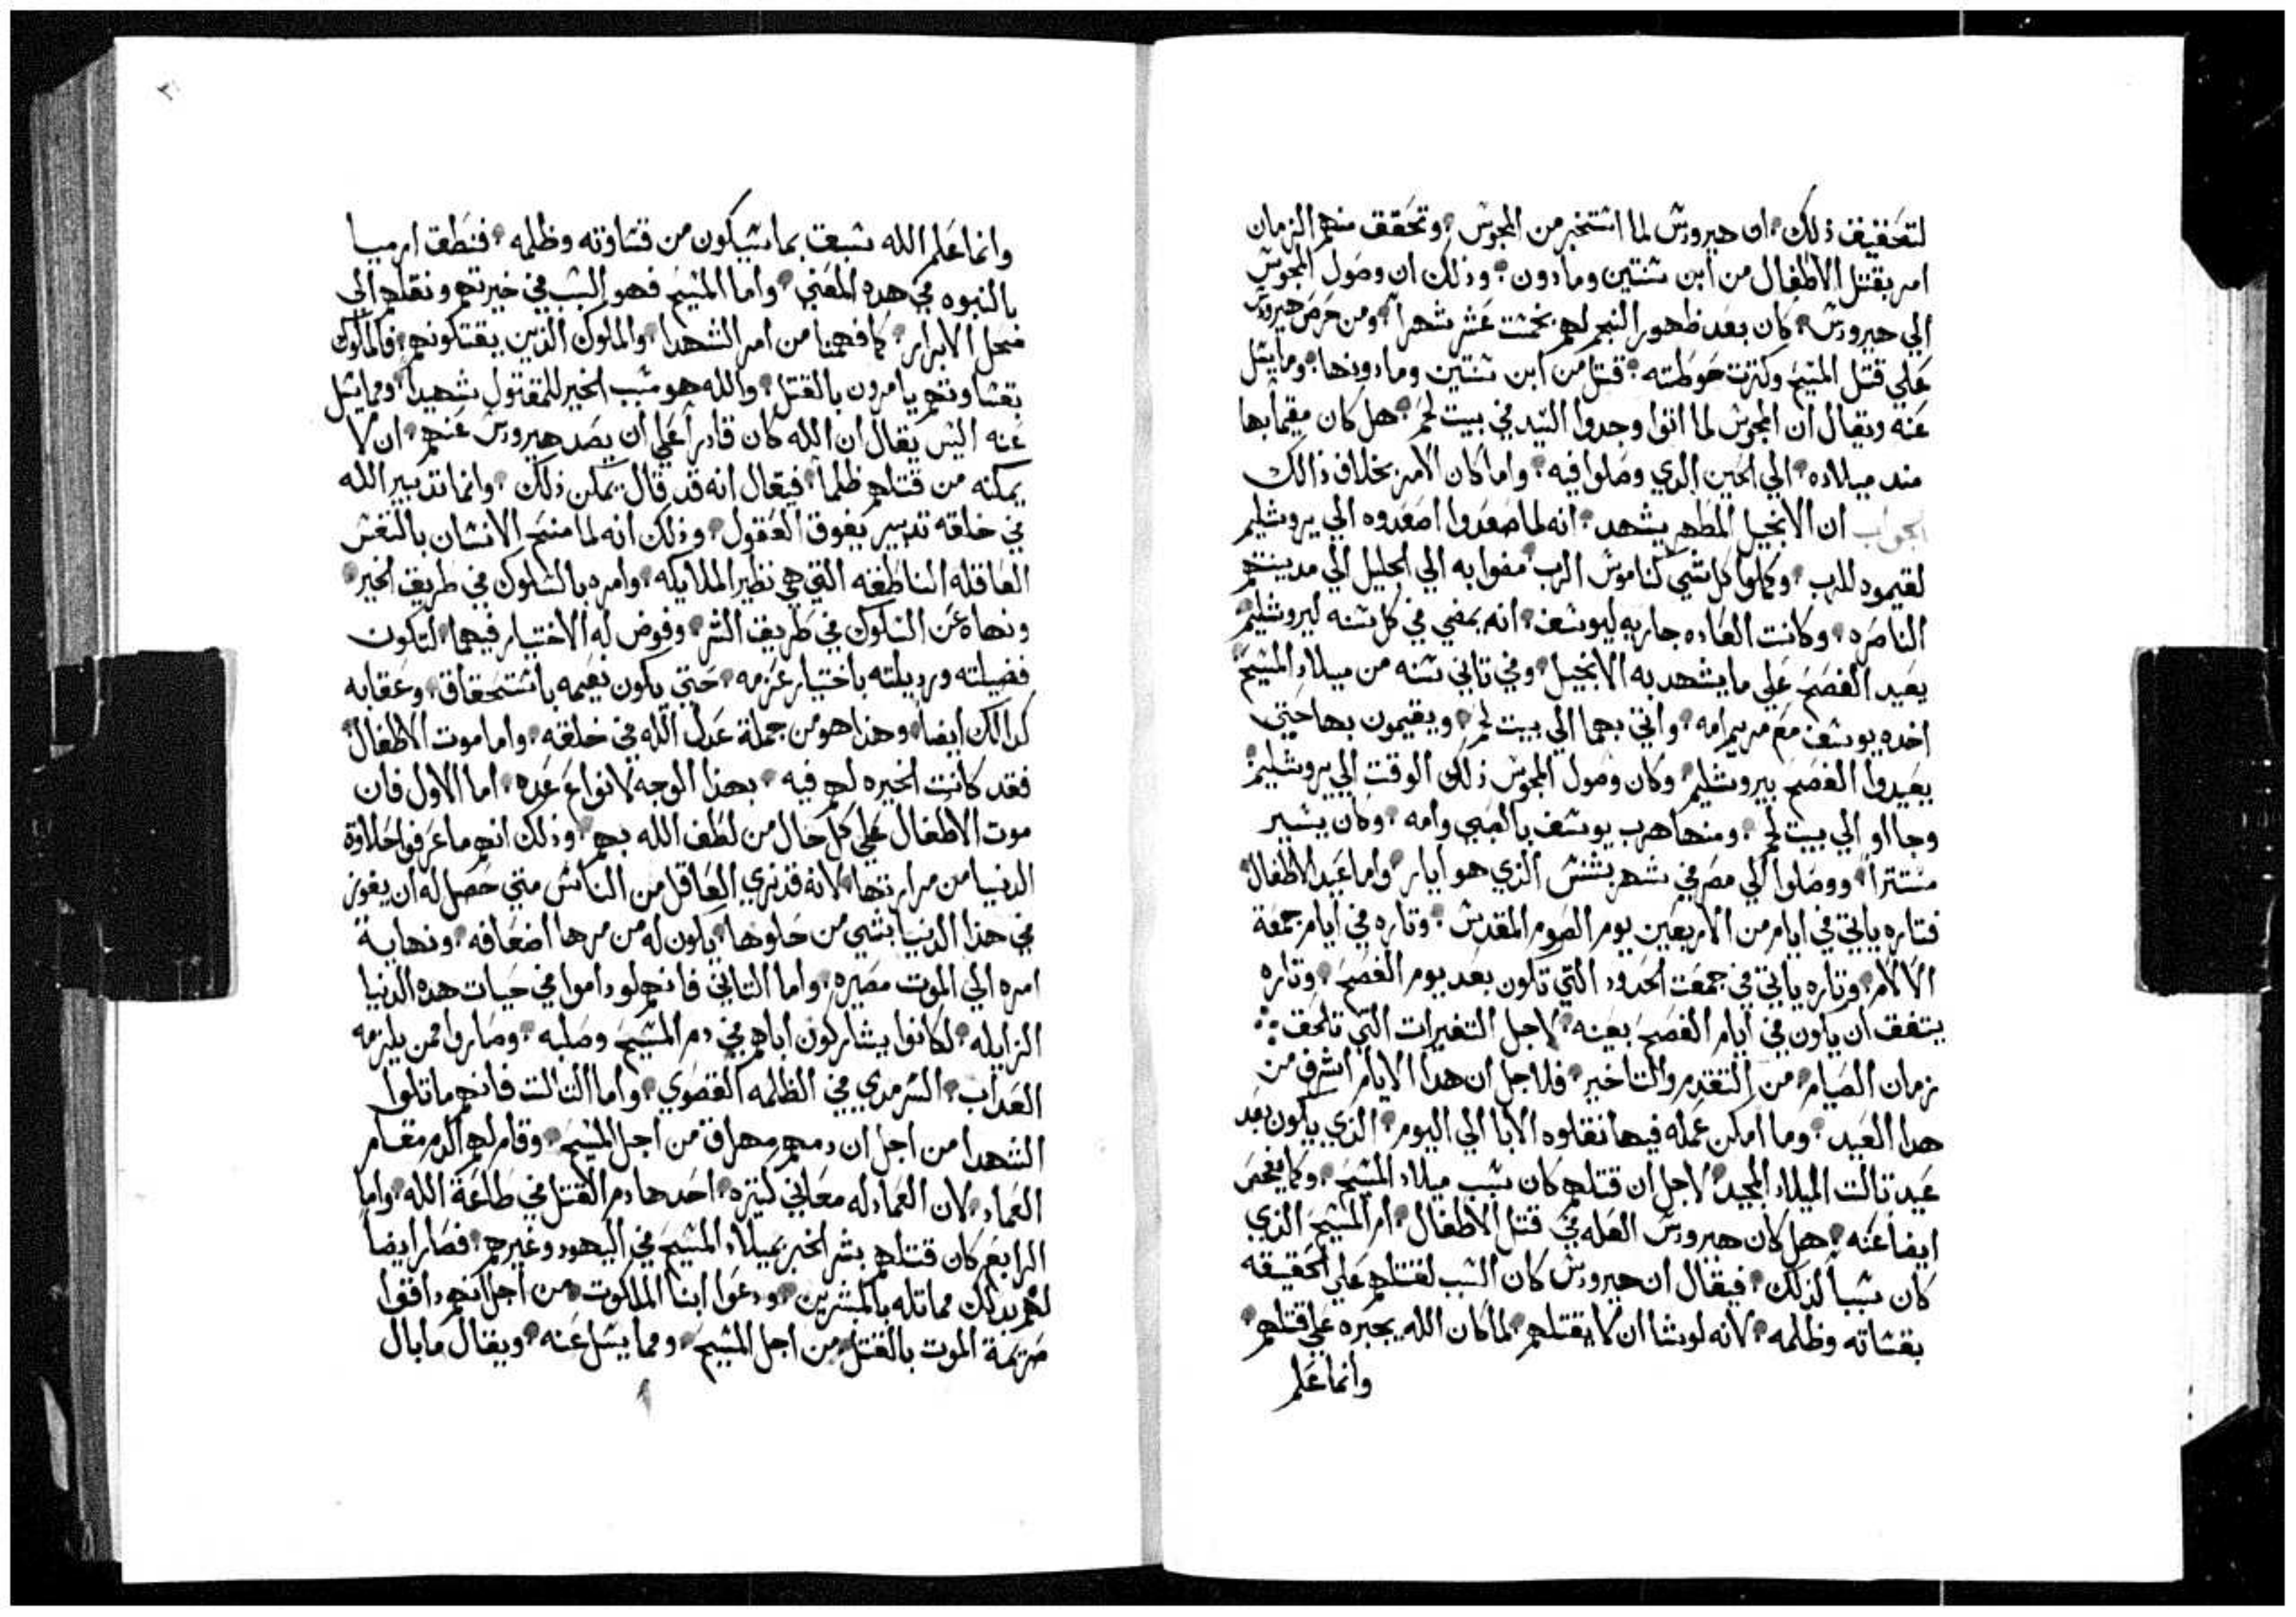 لتحقيق ذلك ان هيرودس لما استخبر من المجوس وتحقق منهم الزمان
امر بقتل الاطفال من ابن سنتين وما دون وذلك ان وصول المجوس
الي هيرودس كان بعد ظهور النجم لهم بخمست عشر شهراً ومن حرص هيرودس
علي قتل المسيح وكترت حوطته قتل من ابن سنتين وما دونها وما يسل
عنه ويقال ان المجوس لما اتوا وجدوا السيد في بيت لحم هل كان مقيماً بها
مند ميلاده الي الحين الدي وصلوا فيه واما كان الامر بخلاف ذالك
الجواب ان الانجيل المطهر يشهد انه لما صعدوا اصعدوه الي يروشليم
لقيموه للرب وكملوا كل شي كناموس الرب مضوا به الي الجليل الي مدينتهم
الناصره وكانت العاده جاريه ليوسف انه يمضي في كل سنه ليروشليم
يعيد الفصح علي ما يشهد به الانجيل وفي تاني سنه من ميلاد المسيح
اخده يوسف مع مريم امه واتي بهما الي بيت لحم ويقيمون بها حتي
يعيدوا الفصح بيروشليم وكان وصول المجوس ذلك الوقت الي يروشليم
وجااو الي بيت لحم ومنها هرب يوسف بالصبي وامه وكان يسير
مستتراً ووصلوا الي مصر في شهر بشنس الذي هو ايار واما عيد الاطفال
فتاره ياتي في ايام من الاربعين يوم الصوم المقدس وتاره في ايام جمعة
الالام وتاره ياتي في جمعت الحدود التي تكون بعد يوم الفصح وتاره
يتفق ان يكون في ايام الفصح بعينه لاجل التغيرات التي تلحق
زمان الصيام من التقدم والتاخير فلاجل ان هدا الايام اشرف من
هدا العيد وما امكن عمله فيها نقلوه الابا الي اليوم الذي يكون بعد
عيد تالت الميلاد المجيد لاجل ان قتلهم كان بسبب ميلاد المسيح وكما يفحص
ايضا عنه هل كان هيرودس العله في قتل الاطفال ام المسيح الذي
كان سبباً لذلك فيقال ان هيرودس كان السبب لقتلهم علي الحقيقه
بقساته وظلمه لانه لو شا ان لا يقتلهم لما كان الله يجبره علي قتلهم
وانما علم
وانما علم الله سبق بما سيكون من قساوته وظلمه فنطق ارميا
بالنبوه في هده المعني واما المسيح فهو السبب في خيرتهم ونقلهم الي
محل الابرار كما فهمنا من امر الشهدا والملوك الذين يقتلونهم فالملوك
بقساوتهم يامرون بالقتل والله هو مسبب الخير للمقتول شهيداً ومما يسل
عنه اليس يقال ان الله كان قادراً علي ان يصد هيرودس عنهم ان لا
يمكنه من قتلهم ظلماً فيقال انه قد قال يمكن ذلك وانما تدبير الله
في خلقه تدبير يفوق العقول وذلك انه لما منح الانسان بالنفس
العاقله الناطقه التي هي نظير الملايكه وامره بالسلوك في طريق الخير
ونهاه عن السلوك في طريق الشر وفوض له الاختيار فيهما لتكون
فضيلته ورديلته باختيار عزمه حتي يكون نعيمه باستحقاق وعقابه
كدالك ايضاً وهذا هو من جملة عدل الله في خلقه واما موت الاطفال
فقد كانت الخيره لهم فيه بهذا الوجه لانواع عده اما الاول فان
موت الاطفال علي كل حال من لطف الله بهم وذلك انهم ما عرفوا حلاوة
الدنيا من مرارتها لانه قد نري العاقل من الناس متي حصل له ان يفوز
في هذا الدنيا بشي من حلوها يكون له من مرها اضعافه ونهاية
امره الي الموت مصيره واما التاني فانهم لو داموا في حيات هده الدنيا
الزايله لكانوا يشاركون اباهم في دم المسيح وصلبه وصاروا ممن يلزمه
العداب السرمدي في الظلمه القصوي واما التالت فانهم ماتلوا
الشهدا من اجل ان دمهم مهراق من اجل المسيح وقام لهم الدم مقام
العماد لان العماد له معاني كتيره احدها دم القتل في طاعة الله واما
الرابع كان قتلهم بشر الخبر بميلاد المسيح في اليهود وغيرهم فصار ايضاً
لهم بدلك مماتله بالمبشرين ودعوا ابنا الملكوت من اجل انهم داقوا
صرخة الموت بالقتل من اجل المسيح ومما يسل عنه ويقال ما بال